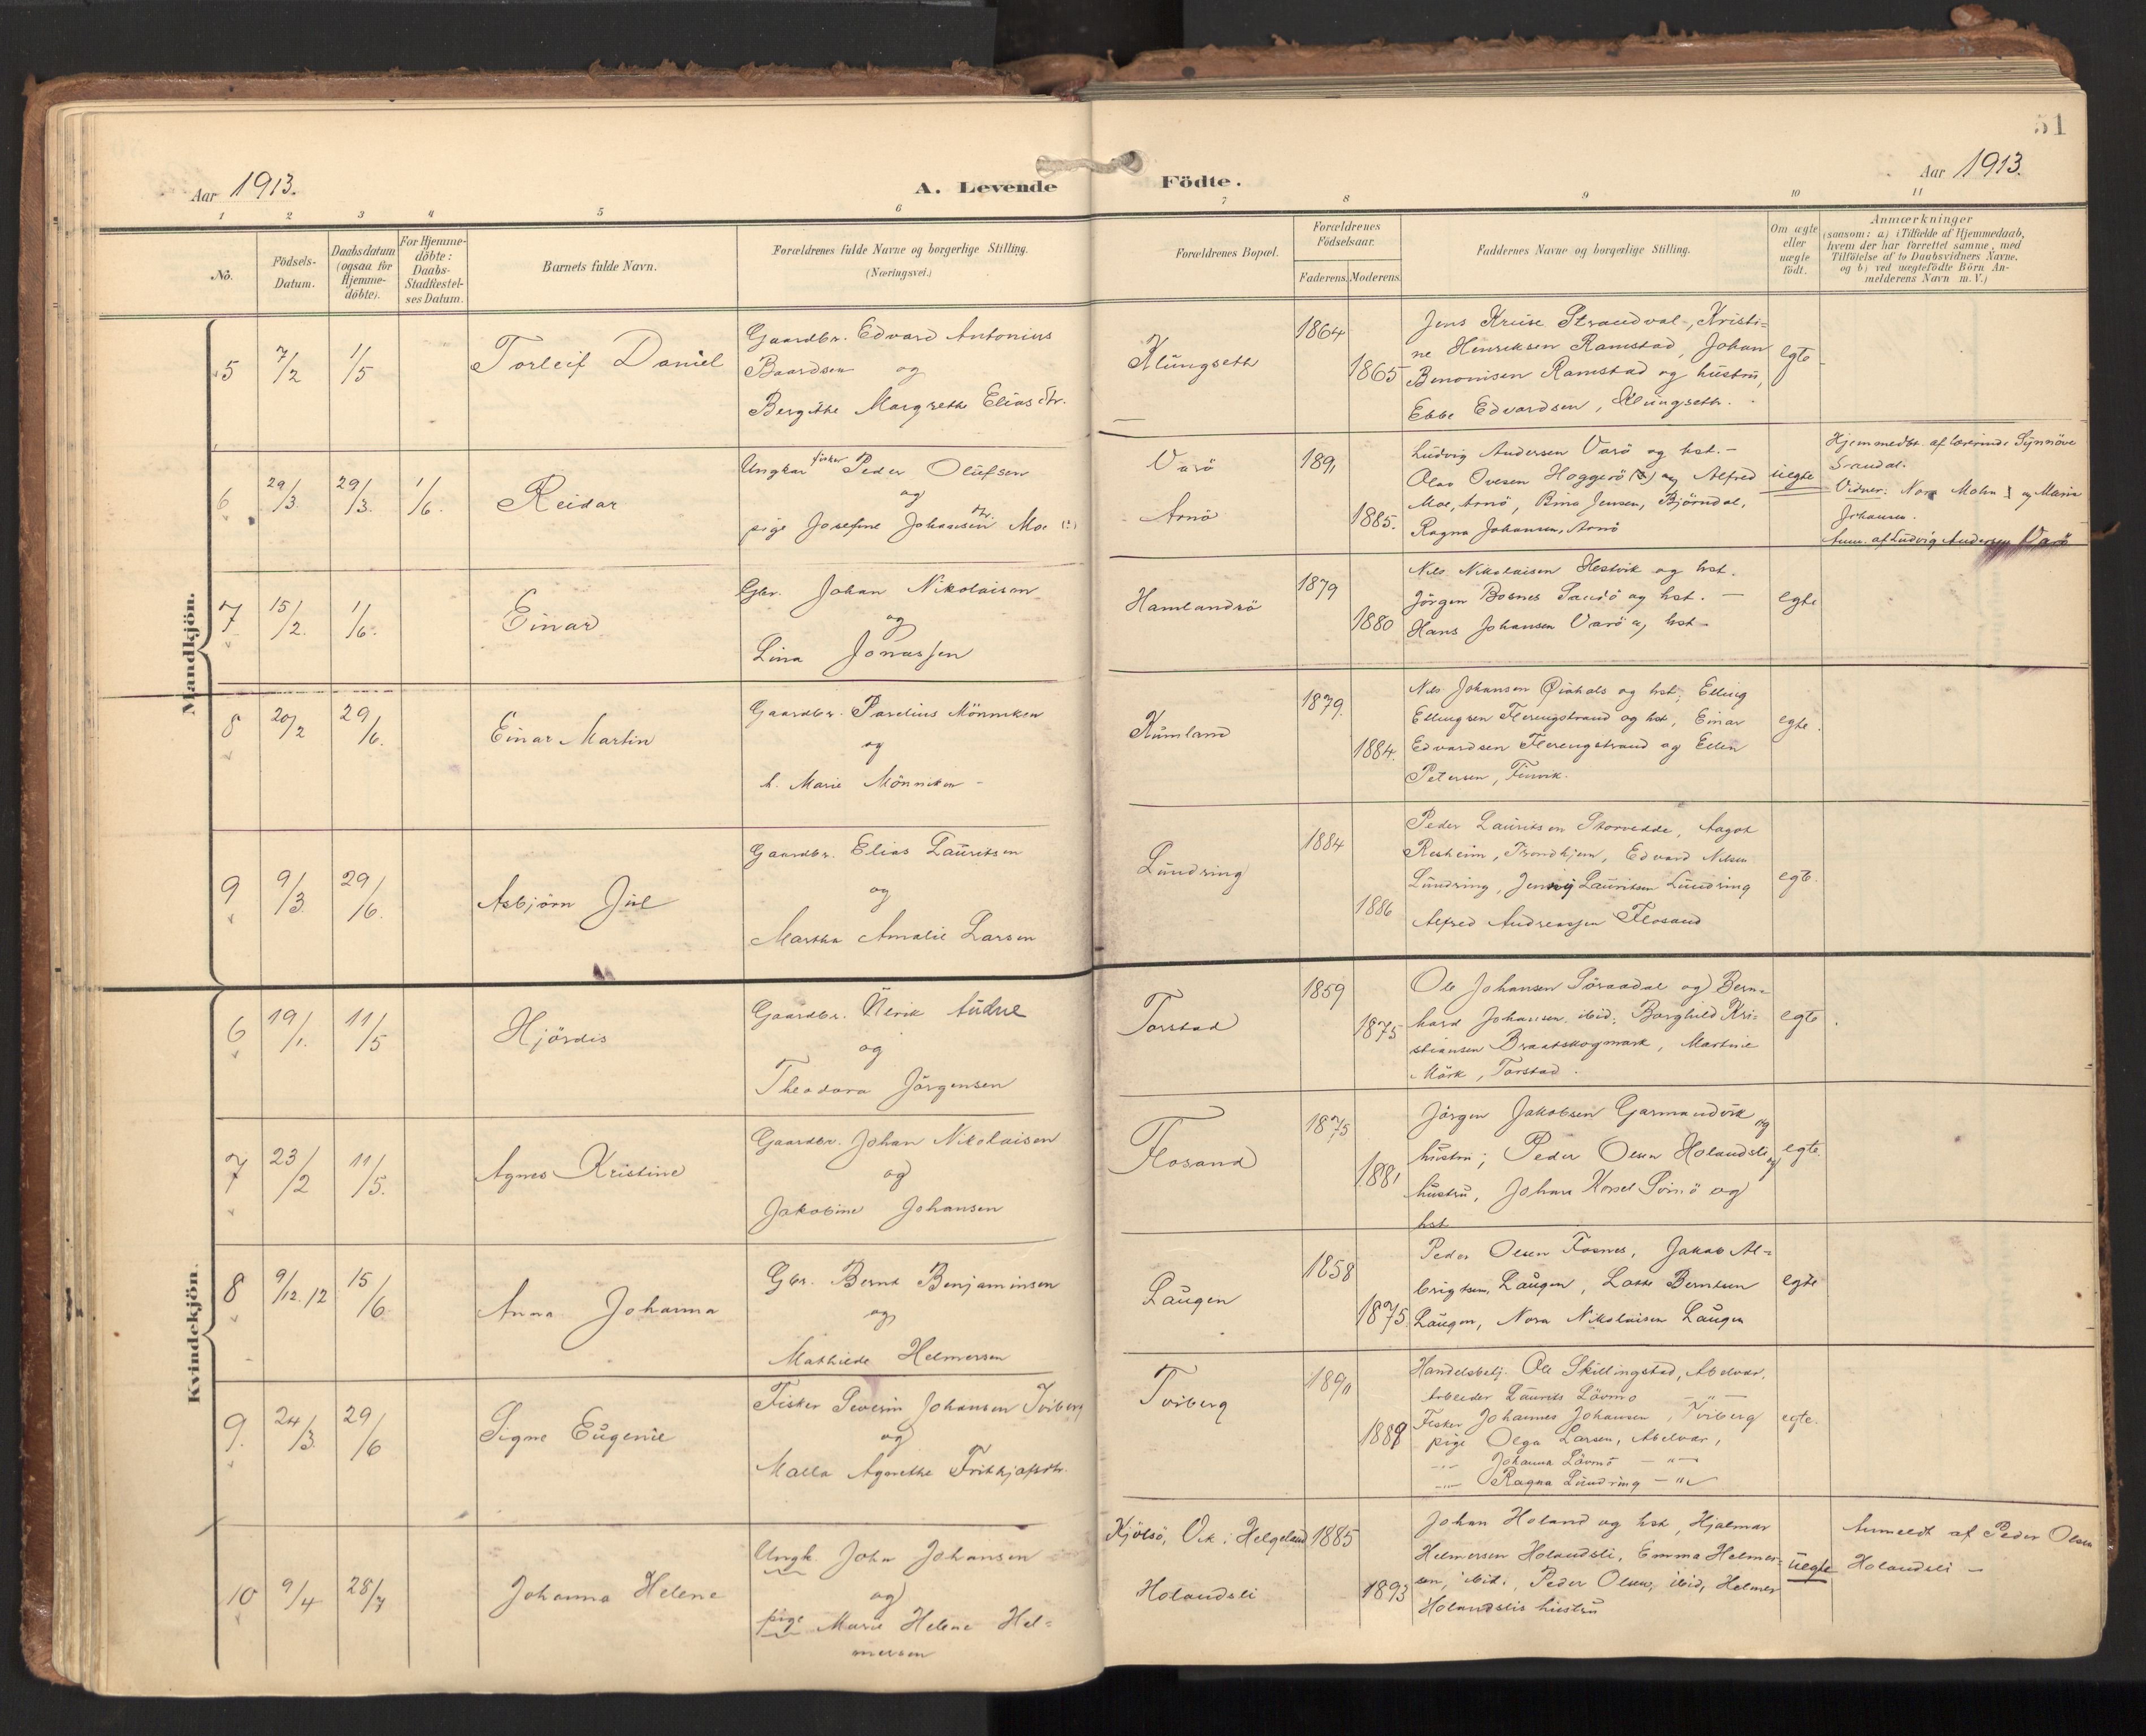 51
Aar 1913.
A. Levende Födte.
Aar 1913.
1 2 3 4 5 6 7 8 9 10 11
No.
Födsels-
Datum.
Daabsdatum
(ogsaa for
Hjemme-
döbte).
For Hjemme-
döbte:
Daabs-
Stadfæstel-
ses Datum.
Barnets fulde Navn.
Forældrenes fulde Navne og borgerlige Stilling.
(Næringsvei.)
Forældrenes Bopæl.
Forældrenes
Födselsaar.
Faderens. Moderens.
Faddernes Navne og borgerlige Stilling.
Om ægte
eller
uægte
födt.
Anmærkninger
(saasom: a) i Tilfælde af Hjemmedaab,
hvem der har forrettet samme, med
Tilföielse af to Daabsvidners Navne,
og b) ved uægtefödte Börn An-
melderens Navn m. V.)
Mandkjön.
5 7/2 1/5 Torleif Daniel
Gaardbr. Edvard Antonius
Baardsen og
Bergitte Margrethe Eliasdtr.
Klungseth
1864
1865
Jens Kruse Strandval, Kristi-
ne Henriksen Ramstad, Johan
Benonisen Ramstad og hustru,
Ebbe Edvardsen, Klungseth.
egte
6 29/3 29/3 1/6. Reidar
Ungkar fisker Peder Olufsen
og
pige Josefine Johansen dtr. Moe
Varö
Arnö
1891
1885.
Ludvig Andersen Varö og hst. -
Olav Ovesen Hoggerö og Alfred
Moe, Arnö, Bina Jensen, Björndal,
Ragna Johansen, Arnö
uegte
Hjemmedbt. af lærerinde Synnöve
Vidner: Nora Mohn og Marie
Johansen.
Anm. af Ludvig Andersen Varö
7 15/2. 1/6. Einar
Gbr. Johan Nikolaisen
og
Lina Jonassen
Hamlandsö
1879
1880
Nils Nikolaisen Hestvik og hst.
Jörgen Bosnes Sandö og hst. -
Hans Johansen Varö og hst -
egte
8 20/2 29/6. Einar Martin
Gaardbr. Parelius Mönniken
og
h. Marie Mönniken -
Kumland
1879.
1884.
Nils Johansen Öiahals og hst, Elling
Ellingsen Flerengstrand og hst, Einar
Edvardsen Flerengstrand og Ellen
Petersen, Finvik.
egte.
9 9/3 29/6. Asbjörn Jul
Gaardbr. Elias Lauritsen
og
Martha Amalie Larsen
Lundring
1884
1886
Peder Lauritsen Storvedde, Aagot
Resheim, Trondhjem, Edvard Nilsen
Lundring, Jenny Lauritsen Lundring
Alfred Andreassen Flosand
egte.
Kvindekjön.
6 19/1. 11/5 Hjördis
Gaardbr. Ulrik Audne
og
Theodora Jörgensen
Torstad
1859
1875
Ole Johansen Söraadal og Bern-
hard Johansen ibid, Borghild Kri-
stiansen Brandskogmark, Martine
Mörk, Torstad.
egte.
7 23/2 11/5. Agnes Kristine
Gaardbr. Johan Nikolaisen
og
Jakobine Johansen
Flosand
1875
1881
Jörgen Jakobsen Garmandvik og
hustru; Peder Olsen Holandsli og
hustru, Johan Korsel Sörö og
hst
egte.
8 9/12.12 15/6. Anna Johanna
Gbr. Bernt Benjaminsen
og
Mathilde Helmersen
Laugen
1858
1875.
Peder Olsen Fosnes, Jakob Al-
brigtsen, Laugen, Lotte Berntsen
Laugen, Nora Nikolaisen Laugen
egte
9. 24/3. 29/6 Signe Eugenie
Fisker Severin Johansen Tviberg
og
Malla Agnethe Frithjofsdtr.
Tviberg
1890
1889
Handelsbetj. Ole Skillingstad, Abelvær.
Arbeider Laurits Lövmo - " -
Fisker Johannes Johansen, Tviberg
pige Olga Larsen, Abelvær,
- " - Johanna Lövmo - " -
- " - Ragna Lundring - " -
egte.
10 9/4 28/7 Johanna Helene
Ungk. John Johansen
og
pige Marie Helene Hel-
mersen
Kjölsö, Vik i Helgeland
Holandsli
1885
1893
Johan Holand og hst, Hjalmar
Helmersen Holandsli, Emma Helmer-
sen, ibid; Peder Olsen, ibid, Helmer
Holandslis hustru
uegte
Anmeldt af Peder Olsen
Holandsli -